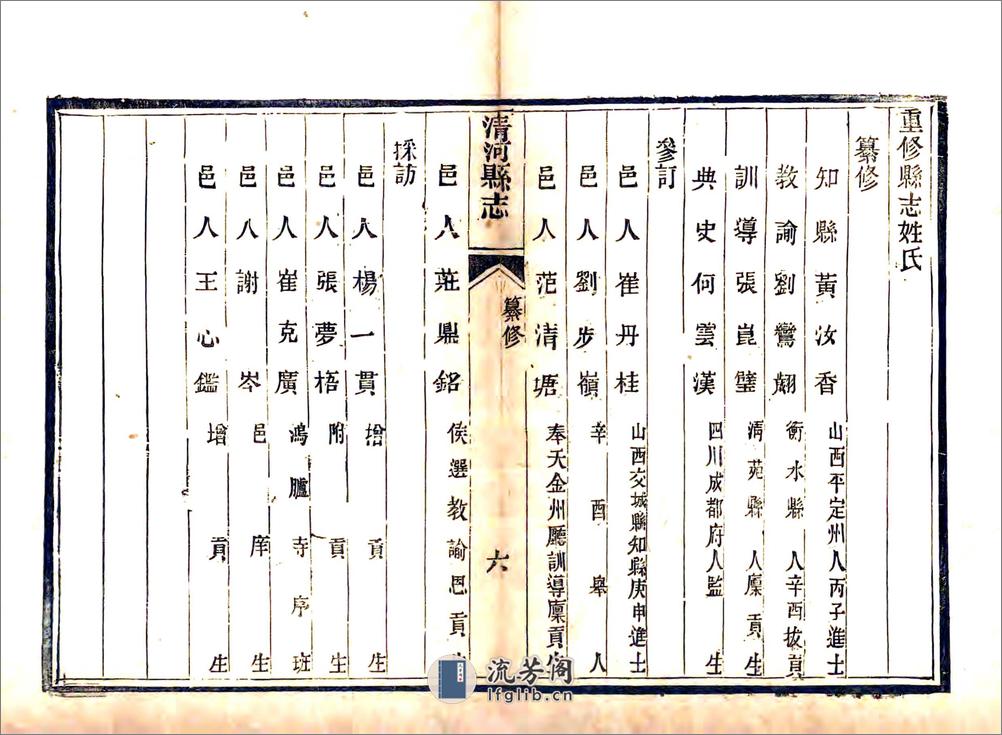 重修縣志姓氏
纂修
知縣黃汝香 山西平定州人丙子進士
教諭劉鸞翿 衡水縣人辛酉拔貢
訓導張崑璧 淸苑縣人廪貢生
典史何雲漢 四川成都府人監生
參訂
邑人崔丹桂 山西交城縣知縣庚申進士
邑人劉步嶺 辛酉舉人
邑人范清塘 奉天金州廳訓導廪貢生
清河縣志
纂修
六
邑人莊鼎銘 候選教諭恩貢生
採訪
邑人楊一貫 增貢生
邑人張夢梧 附貢生
邑人崔克廣 鴻臚寺序班
邑人謝岑 邑庠生
邑人王心鑑 增貢生
流芳阁
lfglib.cn